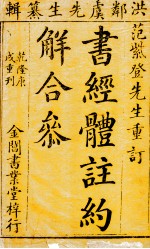 洪鄰虞先生纂輯
范紫登先生重訂
書經體註約
解合參
乾隆庚
戌重刊
金閶書業堂梓行